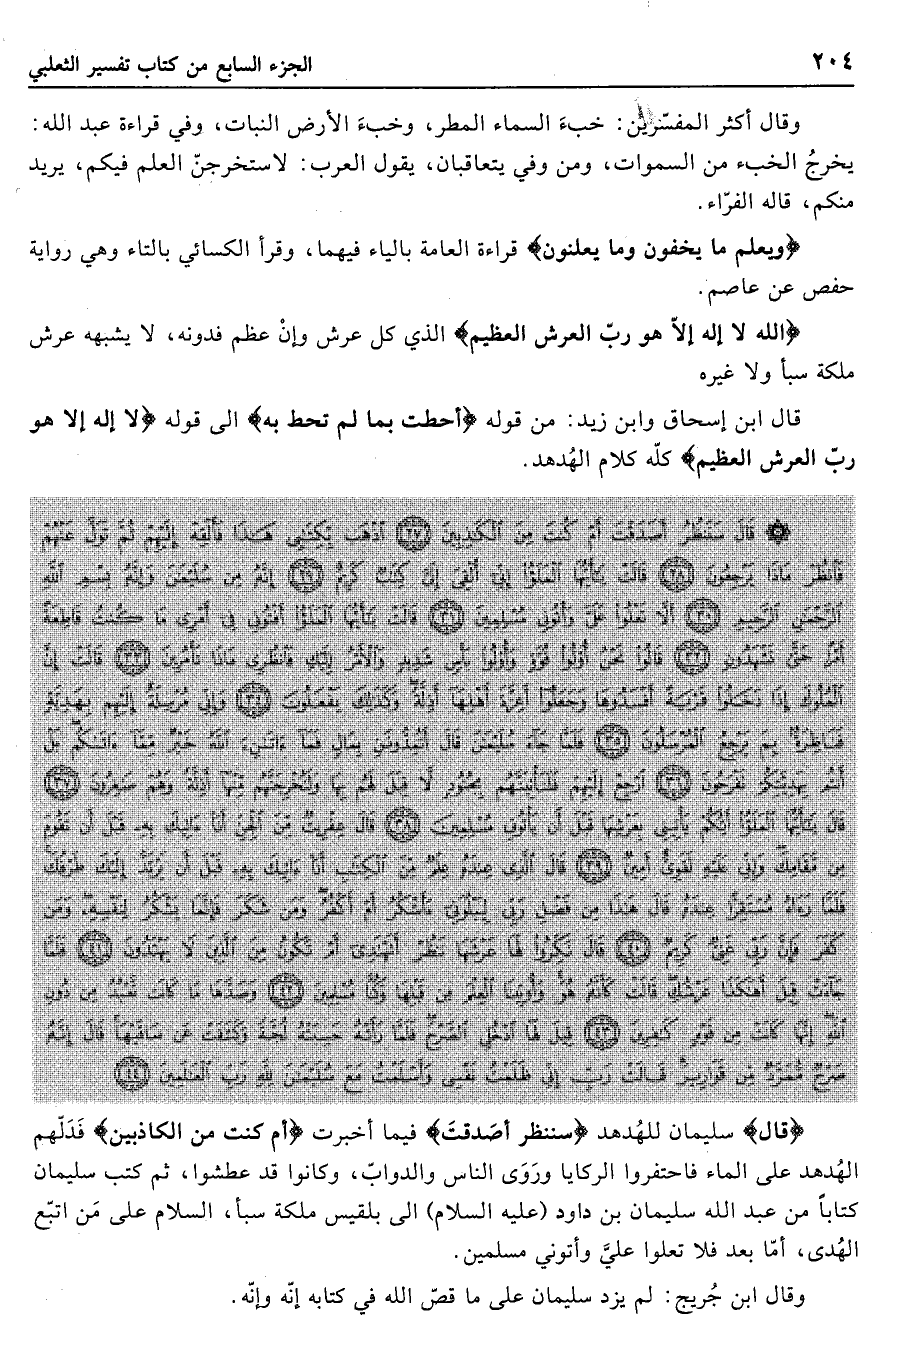 ٢٠٤ الجزء السابع من كتاب تفسير الثعلبي
وقال أكثر المفسّرين: خبءَ السماء المطر، وخبءَ الأرض النبات، وفي قراءة عبد الله:
يخرجُ الخبء من السموات، ومن وفي يتعاقبان، يقول العرب: لاستخرجنّ العلم فيكم، يريد
منكم، قاله الفرّاء.
﴿ويعلم ما يخفون وما يعلنون﴾ قراءة العامة بالياء فيهما، وقرأ الكسائي بالتاء وهي رواية
حفص عن عاصم.
﴿الله لا إله إلاّ هو ربّ العرش العظيم﴾ الذي كل عرش وإنْ عظم فدونه، لا يشبهه عرش
ملكة سبأ ولا غيره
قال ابن إسحاق وابن زيد: من قوله ﴿أحطت بما لم تحط به﴾ الى قوله ﴿لا إله إلا هو
ربّ العرش العظيم﴾ كلّه كلام الهُدهد.
۞ قَالَ سَنَنظُرُ أَصَدَقْتَ أَمْ كُنتَ مِنَ ٱلْكَٰذِبِينَ ﴿٢٧﴾ ٱذْهَب بِّكِتَٰبِى هَٰذَا فَأَلْقِهْ إِلَيْهِمْ ثُمَّ تَوَلَّ عَنْهُمْ
فَٱنظُرْ مَاذَا يَرْجِعُونَ ﴿٢٨﴾ قَالَتْ يَٰٓأَيُّهَا ٱلْمَلَؤُا۟ إِنِّىٓ أُلْقِىَ إِلَىَّ كِتَٰبٌ كَرِيمٌ ﴿٢٩﴾ إِنَّهُۥ مِن سُلَيْمَٰنَ وَإِنَّهُۥ بِسْمِ ٱللَّهِ
ٱلرَّحْمَٰنِ ٱلرَّحِيمِ ﴿٣٠﴾ أَلَّا تَعْلُوا۟ عَلَىَّ وَأْتُونِى مُسْلِمِينَ ﴿٣١﴾ قَالَتْ يَٰٓأَيُّهَا ٱلْمَلَؤُا۟ أَفْتُونِى فِىٓ أَمْرِى مَا كُنتُ قَاطِعَةً
أَمْرًا حَتَّىٰ تَشْهَدُونِ ﴿٣٢﴾ قَالُوا۟ نَحْنُ أُو۟لُوا۟ قُوَّةٍ وَأُو۟لُوا۟ بَأْسٍ شَدِيدٍ وَٱلْأَمْرُ إِلَيْكِ فَٱنظُرِى مَاذَا تَأْمُرِينَ ﴿٣٣﴾ قَالَتْ إِنَّ
ٱلْمُلُوكَ إِذَا دَخَلُوا۟ قَرْيَةً أَفْسَدُوهَا وَجَعَلُوٓا۟ أَعِزَّةَ أَهْلِهَآ أَذِلَّةً وَكَذَٰلِكَ يَفْعَلُونَ ﴿٣٤﴾ وَإِنِّى مُرْسِلَةٌ إِلَيْهِم بِهَدِيَّةٍ
فَنَاظِرَةٌۢ بِمَ يَرْجِعُ ٱلْمُرْسَلُونَ ﴿٣٥﴾ فَلَمَّا جَآءَ سُلَيْمَٰنَ قَالَ أَتُمِدُّونَنِ بِمَالٍ فَمَآ ءَاتَىٰنِۦَ ٱللَّهُ خَيْرٌ مِّمَّآ ءَاتَىٰكُم بَلْ
أَنتُم بِهَدِيَّتِكُمْ تَفْرَحُونَ ﴿٣٦﴾ ٱرْجِعْ إِلَيْهِمْ فَلَنَأْتِيَنَّهُم بِجُنُودٍ لَّا قِبَلَ لَهُم بِهَا وَلَنُخْرِجَنَّهُم مِّنْهَآ أَذِلَّةً وَهُمْ صَٰغِرُونَ ﴿٣٧﴾
قَالَ يَٰٓأَيُّهَا ٱلْمَلَؤُا۟ أَيُّكُمْ يَأْتِينِى بِعَرْشِهَا قَبْلَ أَن يَأْتُونِى مُسْلِمِينَ ﴿٣٨﴾ قَالَ عِفْرِيتٌ مِّنَ ٱلْجِنِّ أَنَا۠ ءَاتِيكَ بِهِۦ قَبْلَ أَن تَقُومَ
مِن مَّقَامِكَ وَإِنِّى عَلَيْهِ لَقَوِىٌّ أَمِينٌ ﴿٣٩﴾ قَالَ ٱلَّذِى عِندَهُۥ عِلْمٌ مِّنَ ٱلْكِتَٰبِ أَنَا۠ ءَاتِيكَ بِهِۦ قَبْلَ أَن يَرْتَدَّ إِلَيْكَ طَرْفُكَ
فَلَمَّا رَءَاهُ مُسْتَقِرًّا عِندَهُۥ قَالَ هَٰذَا مِن فَضْلِ رَبِّى لِيَبْلُوَنِىٓ ءَأَشْكُرُ أَمْ أَكْفُرُ وَمَن شَكَرَ فَإِنَّمَا يَشْكُرُ لِنَفْسِهِۦ وَمَن
كَفَرَ فَإِنَّ رَبِّى غَنِىٌّ كَرِيمٌ ﴿٤٠﴾ قَالَ نَكِّرُوا۟ لَهَا عَرْشَهَا نَنظُرْ أَتَهْتَدِىٓ أَمْ تَكُونُ مِنَ ٱلَّذِينَ لَا يَهْتَدُونَ ﴿٤١﴾ فَلَمَّا
جَآءَتْ قِيلَ أَهَٰكَذَا عَرْشُكِ قَالَتْ كَأَنَّهُۥ هُوَ وَأُوتِينَا ٱلْعِلْمَ مِن قَبْلِهَا وَكُنَّا مُسْلِمِينَ ﴿٤٢﴾ وَصَدَّهَا مَا كَانَت تَّعْبُدُ مِن دُونِ
ٱللَّهِ إِنَّهَا كَانَتْ مِن قَوْمٍ كَٰفِرِينَ ﴿٤٣﴾ قِيلَ لَهَا ٱدْخُلِى ٱلصَّرْحَ فَلَمَّا رَأَتْهُ حَسِبَتْهُ لُجَّةً وَكَشَفَتْ عَن سَاقَيْهَا قَالَ إِنَّهُۥ
صَرْحٌ مُّمَرَّدٌ مِّن قَوَارِيرَ قَالَتْ رَبِّ إِنِّى ظَلَمْتُ نَفْسِى وَأَسْلَمْتُ مَعَ سُلَيْمَٰنَ لِلَّهِ رَبِّ ٱلْعَٰلَمِينَ ﴿٤٤﴾
﴿قال﴾ سليمان للهُدهد ﴿سننظر أصَدقتَ﴾ فيما أخبرت ﴿أم كنت من الكاذبين﴾ فَدَلّهم
الهُدهد على الماء فاحتفروا الركايا ورَوَى الناس والدوابّ، وكانوا قد عطشوا، ثم كتب سليمان
كتاباً من عبد الله سليمان بن داود (عليه السلام) الى بلقيس ملكة سبأ، السلام على مَن اتبّع
الهُدى، أمّا بعد فلا تعلوا عليَّ وأتوني مسلمين.
وقال ابن جُريج: لم يزد سليمان على ما قصّ الله في كتابه إنّه وإنّه.